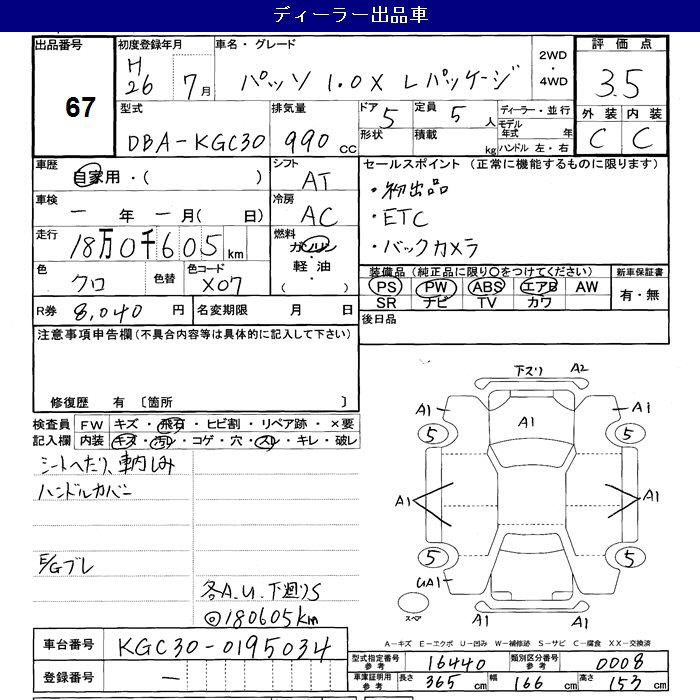 ディーラー出品車
出品番号
67
初度登録年月
H26 7月
車名・グレード
パッソ 1.0X Lパッケージ
2WD
・
4WD
評価点
3.5
外装 内装
C C
型式
DBA-KGC30
排気量
990 cc
ドア 5
形状
定員 5 人
積載 kg
ディーラー・並行
モデル年式 年
ハンドル 左・右
車歴
自家用・( )
シフト
AT
セールスポイント (正常に機能するものに限ります)
・初出品
・ETC
・バックカメラ
車検
一 年 一 月( 日)
冷房
AC
走行
18万0千605km
燃料
ガソリン
軽油
( )
色
クロ
色替
色コード
X07
装備品(純正品に限り○をつけてください)
PS PW ABS エアB AW
SR ナビ TV カワ
新車保証書
有・無
R券 8,040 円
名変期限 月 日
後日品
注意事項申告欄(不具合内容等は具体的に記入して下さい)
修復歴 有 〔箇所 〕
検査員記入欄
FW キズ・飛石・ヒビ割・リペア跡・×要
内装 キズ・汚レ・コゲ・穴・スレ・キレ・破レ
シートへたり、車内しみ
ハンドルカバー
E/Gブレ
各A.U.下廻りS
◎180605km
下スリ A2
A1 A1 A1
5 5
A1 A1
5 5
UA1
スペア
A-キズ E-エクボ U-凹み W-補修跡 S-サビ C-腐食 XX-交換済
車台番号 KGC30-0195034
登録番号 一
型式指定番号 参考 16440
類別区分番号 参考 0008
車庫証明用 参考
長さ 365 cm 幅 166 cm 高さ 153 cm